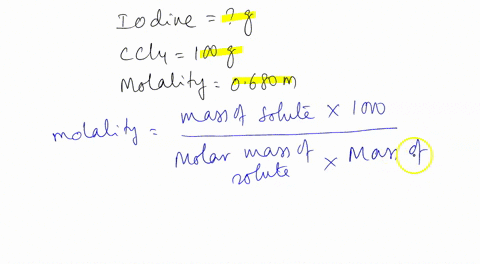 Iodine = ? g
CCl4 = 100 g
Molality = 0.680 m
molality = mass of solute × 1000
Molar mass of solute × Mass of